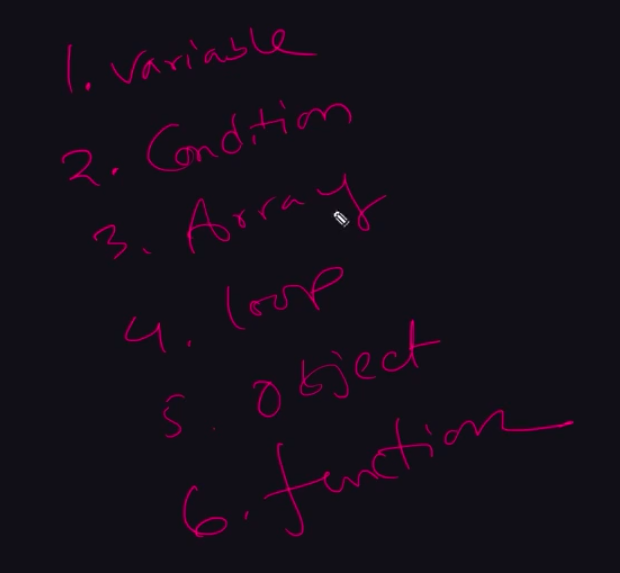 1. variable
2. Condition
3. Array
4. loop
5. object
6. function